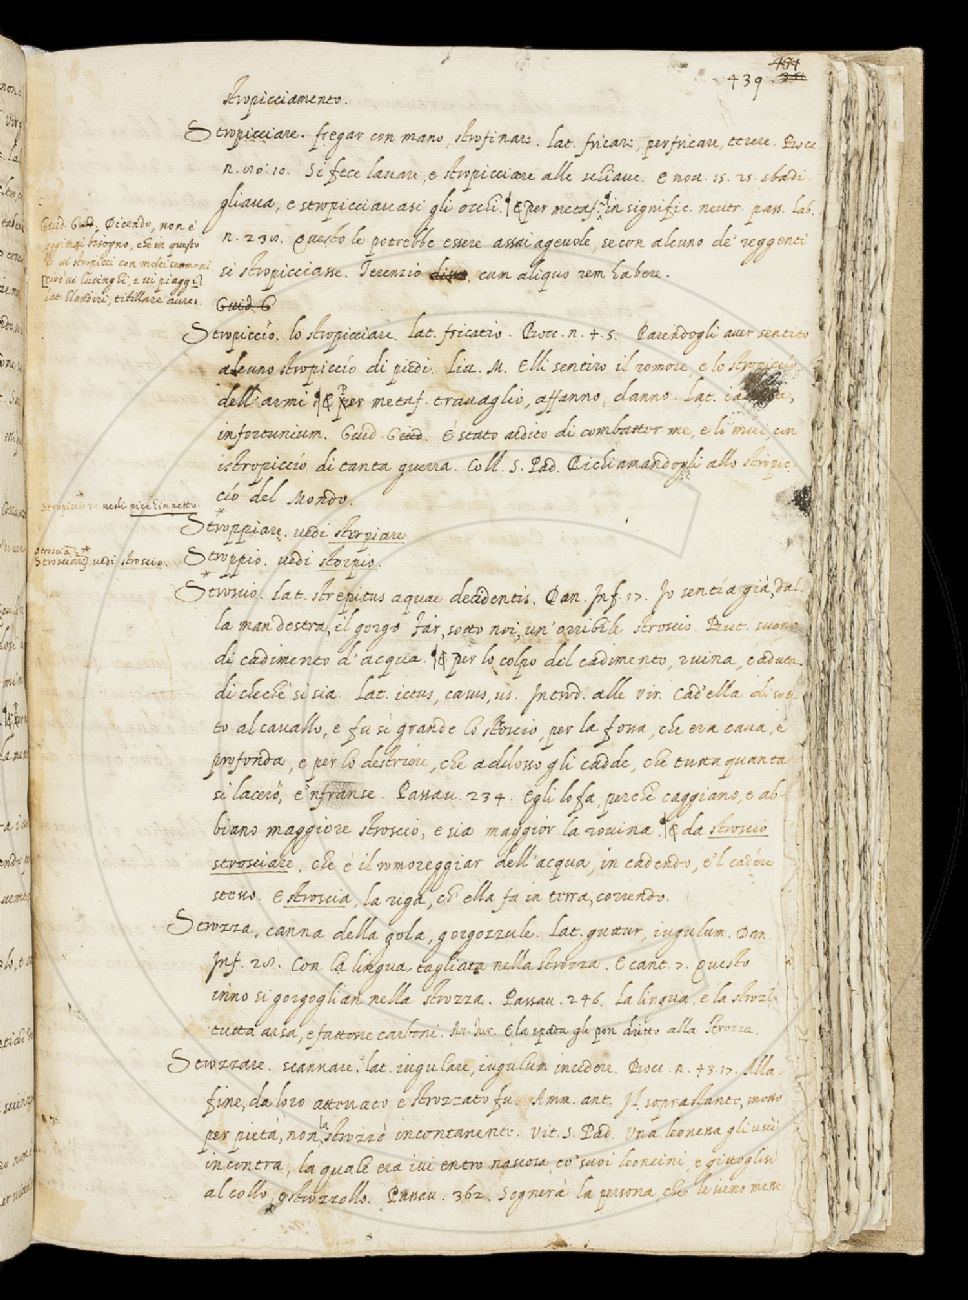 439
stropicciamento.
Stropicciare. fregar con mano, strofinare. Lat. fricare, perfricare, terere. Bocc.
n. 80. 10. Si fece lavare, e stropicciare alle schiave. E nov. 15. 25. sbadi-
gliava, e stropicciavasi gli occhi. ¶ E per metaf. in signific. neutr. pass. Lab.
n. 238. Questo le potrebbe essere assai agevole, se con alcuno de' reggenti
si stropicciasse. Terenzio cum aliquo rem habere.
Guid. G
Stropiccío. lo stropicciare. Lat. fricatio. Bocc. n. 4. 5. Parendogli aver sentito
alcuno stropiccío di piedi. Liv. M. Elli sentiro il romore e lo stropiccío
dell'armi. ¶ E per metaf. travaglio, affanno, danno. Lat.
infortunium. Guid. Guid. È stato ardito di combatter me, e li miei, con
istropiccío di tanta guerra. Coll. S. Pad. Richiamandogli allo stropic-
cío del Mondo.
Stroppiare. vedi storpiare
Stroppio. vedi storpio.
Stroscio. Lat. strepitus aquae decidentis. Dan. Inf. 17. Io sentía già, dal-
la man destra, il gorgo far, sotto noi, un' orribile stroscio. But. suono
di cadimento d'acqua. ¶ E per lo colpo del cadimento, ruina, caduta
di checchè si sia. Lat. ictus, casus, us. Introd. alle vir. Cad'ella di sot-
to al cavallo, e fu sì grande lo stroscio, per la fossa, che era cava, e
profonda, e per lo destriere, che addosso gli cadde, che tutta quanta
si lacerò, e 'nfranse. Passav. 234. Egli lo fa, perchè caggiano, e ab-
biano maggiore stroscio, e sia maggior la rovina. ¶ E da stroscio
strosciare, che è il romoreggiar dell'acqua, in cadendo, e 'l cadére
stesso. E stroscia, la riga, ch'ella fa in terra, correndo.
Strozza, canna della gola, gorgozzule. Lat. guttur, iugulum. Dan.
Inf. 28. Con la lingua tagliata nella strozza. E cant. 7. Questo
inno si gorgoglian nella strozza. Passav. 246. La lingua, e la strozza
tutta arsa, e fattone carboni. E la spada gli pon dritto alla strozza.
Strozzare. scannare. Lat. iugulare, iugulum incidere. Bocc. n. 43. 17. Alla
fine, da loro atterrato e strozzato fu. Amm. ant. Il soprastante, mosso
per pietà, non la strozzò incontanente. Vit. S. Pad. Una leonessa gli uscì
incontra, la quale era ivi entro nascosa, co' suoi leoncini, e gittoglisi
al collo, e strozzollo. Passav. 362. Sognerà la persona, che le vieno meno
Guid. Guid. Dicendo, non è
oggimai bisogno, che in questo
tu ti stropicci con molti sermoni
[cioè ti lusinghi, e ti piaggi]
Lat. blandiri, titillare aures.
vedi piccin petto
stroscia
Strosciare. vedi stroscio.